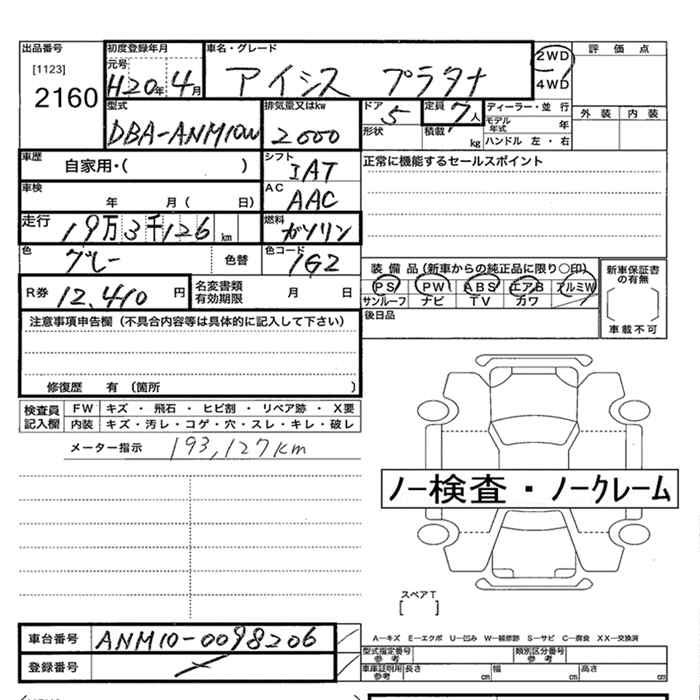 出品番号 初度登録年月 車名・グレード 2WD 評価点
[1123] 元号 H20年 4月 アイシス プラタナ 4WD
2160 型式 排気量又はkw ドア 5 定員 7人 ディーラー・並 行 外 装 内 装
DBA-ANM10W 2000 形状 積載 kg モデル年式 年
ハンドル 左・右
車歴 自家用・( ) シフト IAT 正常に機能するセールスポイント
車検 年 月( 日) AC AAC
走行 19万3千126km 燃料 ガソリン
色 グレー 色替 色コード 1G2 装備品(新車からの純正品に限り○印) 新車保証書の有無
R券 12,410円 名変書類有効期限 月 日 PS PW ABS エアB アルミW
サンルーフ ナビ TV カワ
注意事項申告欄(不具合内容等は具体的に記入して下さい) 後日品 車載不可
修復歴 有(箇所 )
検査員記入欄 FW キズ・飛石・ヒビ割・リペア跡・X要
内装 キズ・汚レ・コゲ・穴・スレ・キレ・破レ
メーター指示 193,127km
ノー検査・ノークレーム
スペアT
[ ]
車台番号 ANM10-0098206 A-キズ E-エクボ U-凹み W-補修跡 S-サビ C-腐食 XX-交換済
登録番号 型式指定番号参考 類別区分番号参考
車庫証明用参考 長さ cm 幅 cm 高さ cm